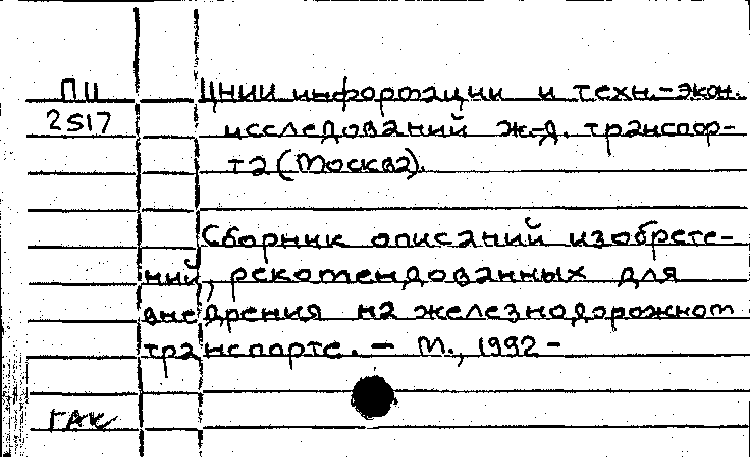 П II ЦНИИ информации и техн.-экон.
2517 исследований ж-д. транспор-
та (Москва).
Сборник описаний изобрете-
ний, рекомендованных для
внедрения на железнодорожном
транспорте. – М., 1992 –
ГАК